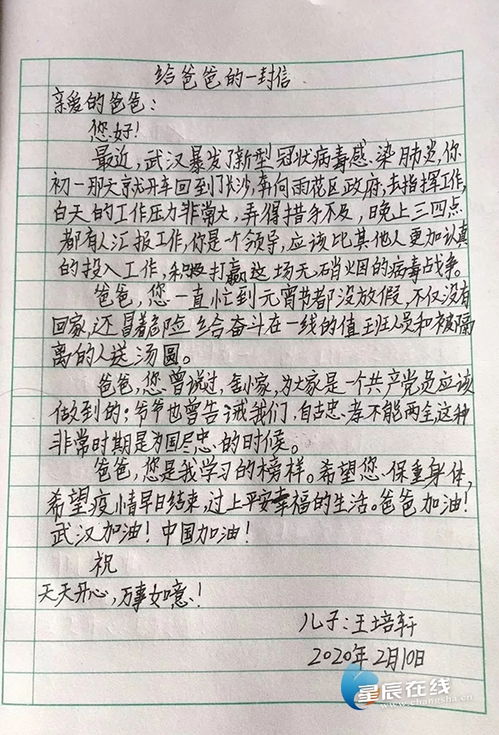 给爸爸的一封信
亲爱的爸爸：
您好！
最近，武汉暴发了新型冠状病毒感染肺炎，你
初一那天就开车回到了长沙，奔向雨花区政府，去指挥工作，
白天的工作压力非常大，弄得措手不及，晚上三四点
都有人汇报工作，你是一个领导，应该比其他人更加认真
的投入工作，积极打赢这场无硝烟的病毒战争。
爸爸，您一直忙到元宵节都没放假，不仅没有
回家，还冒着危险给奋斗在一线的值班人员和被隔
离的人送汤圆。
爸爸，您曾说过，舍小家，为大家是一个共产党员应该
做到的；爷爷也曾告诫我们，自古忠、孝不能两全，这种
非常时期是为国尽忠的时候。
爸爸，您是我学习的榜样。希望您保重身体，
希望疫情早日结束，过上平安幸福的生活。爸爸加油！
武汉加油！中国加油！
祝
天天开心，万事如意！
儿子：王培轩
2020年2月10日
星辰在线
www.changsha.cn